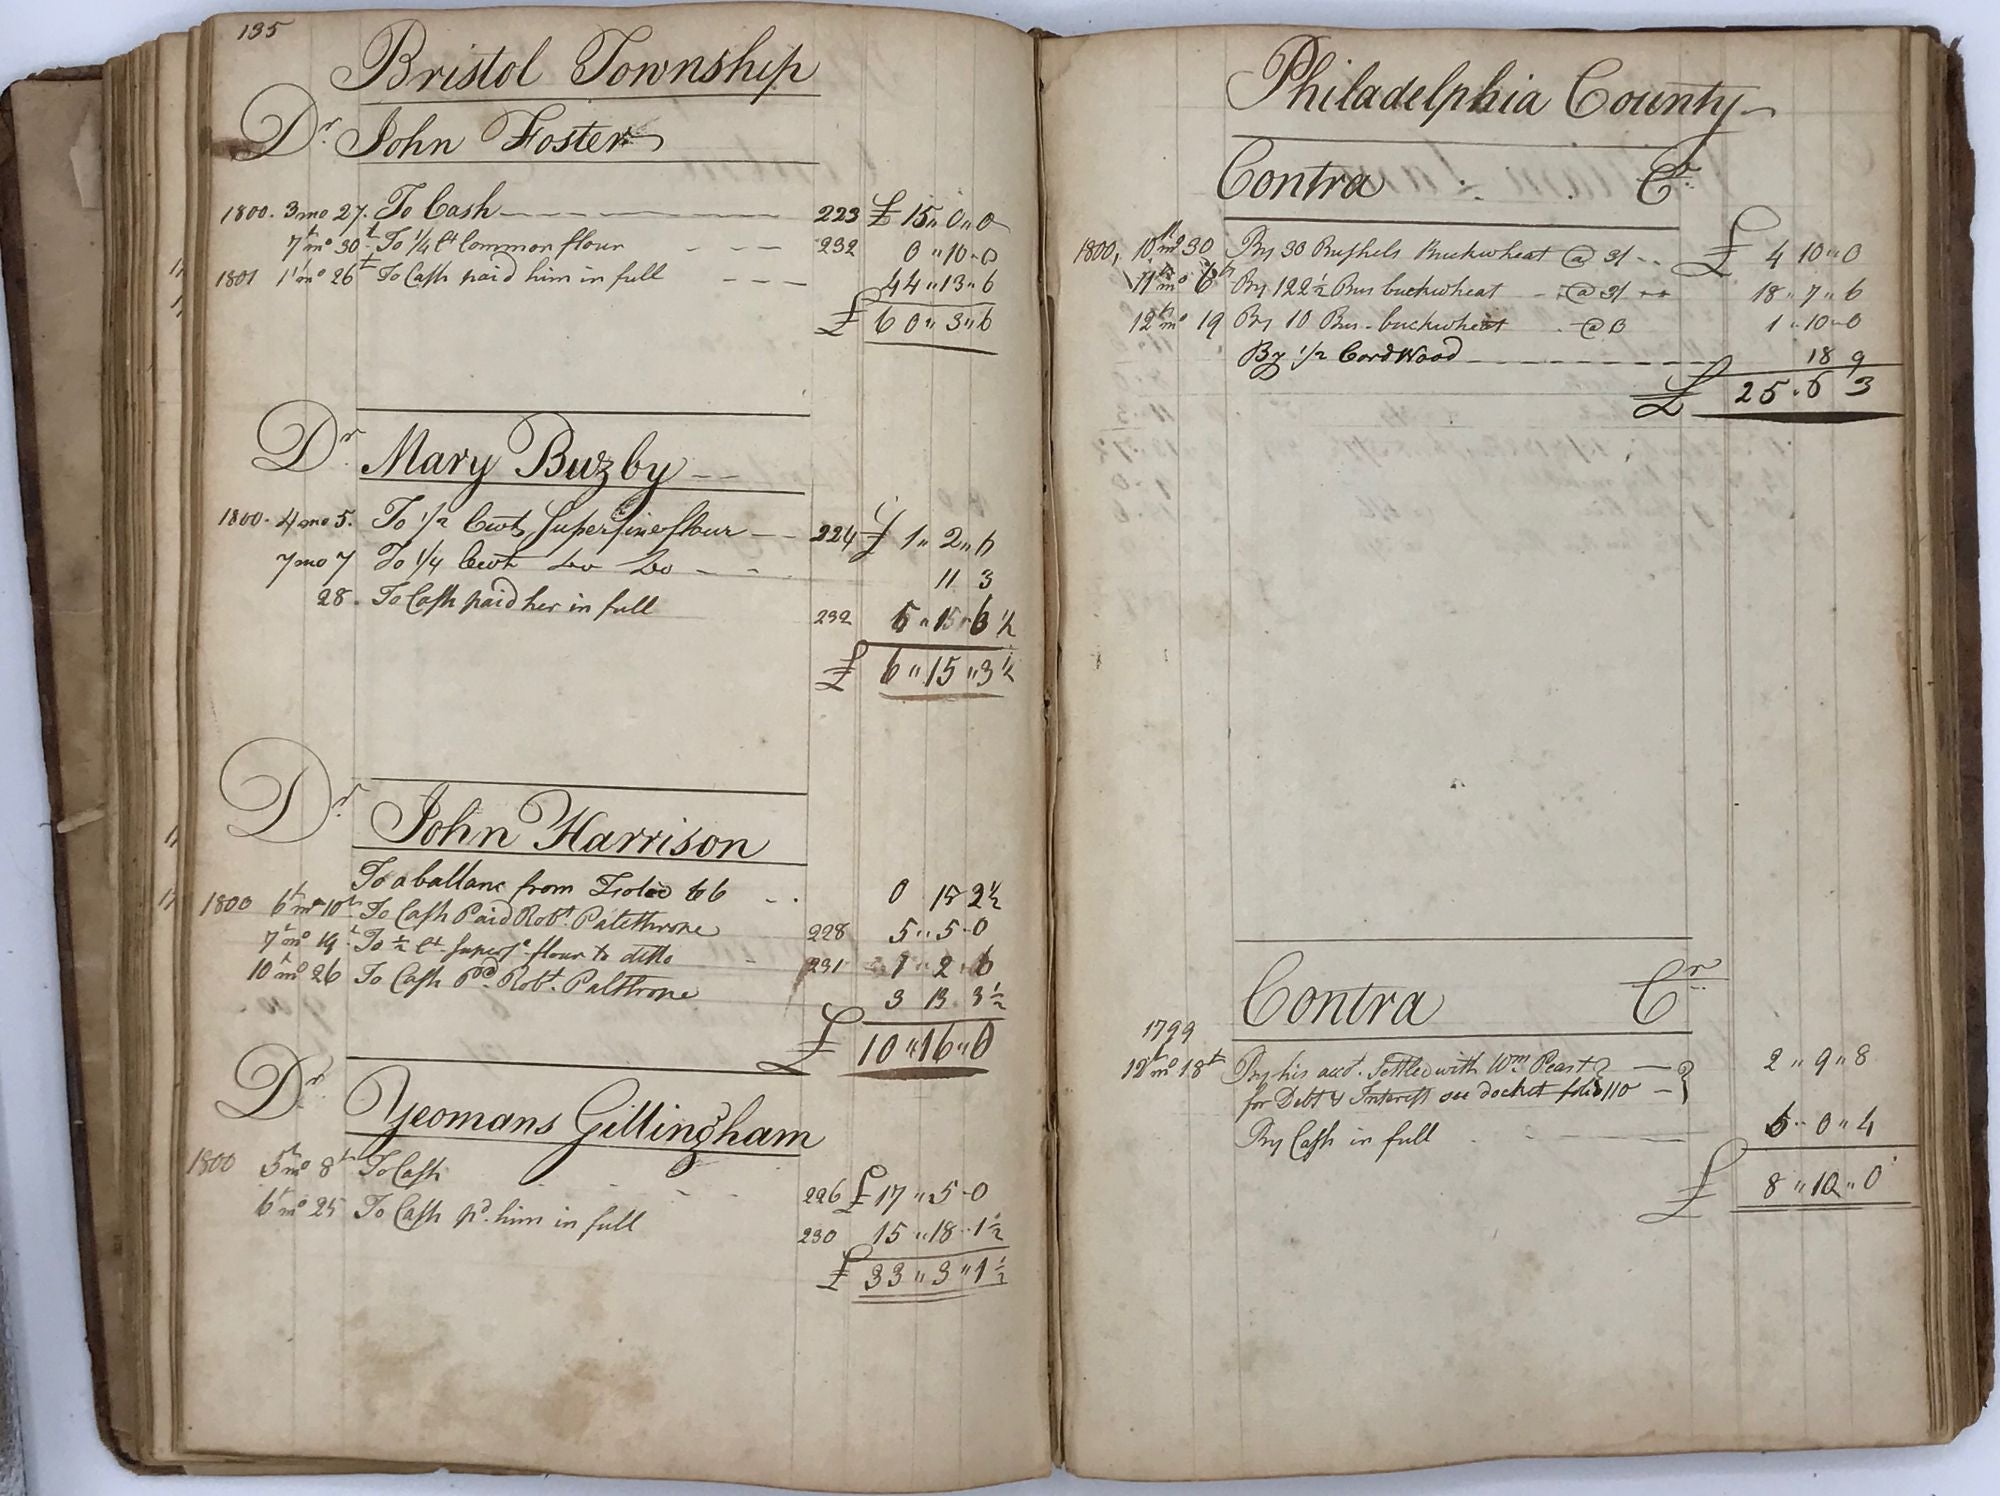 135
Bristol Township
Dr. John Foster
1800. 3mo 27. To Cash 223 £ 15 " 0 " 0
7th mo 30th To 1/4 Ct Common flour 232 0 " 10 - 0
1801 1st mo 26th To Cash paid him in full 44 " 13 " 6
£ 60 " 3 " 6
Dr. Mary Buzby
1800. 4mo 5. To 1/2 Cwt Superfine flour 224 £ 1 " 2 " 6
7mo 7 To 1/4 Cwt Do Do 11 3
28. To Cash paid her in full 232 5 " 15 " 6 1/2
£ 6 " 15 " 3 1/2
Dr. John Harrison
To a ballanc from Folio 66 0 15 2 1/2
1800 6th mo 10th To Cash Paid Robt. Patethrope 228 5 " 5 - 0
7th mo 19th To 1/2 Ct Superf. flour to ditto 231 1 " 2 " 6
10th mo 26 To Cash Pd. Robt. Palthrope 3 13 3 1/2
£ 10 " 16 " 0
Dr. Yeomans Gillingham
1800 5th mo 8th To Cash 226 £ 17 " 5 - 0
6th mo 25 To Cash pd. him in full 230 15 " 18 - 1 1/2
£ 33 " 3 " 1 1/2
Philadelphia County
Contra Cr.
1800, 10th mo 30 By 30 Bushels Buckwheat @ 3/ £ 4 10 " 0
11th mo 6th By 122 1/2 Bus buckwheat @ 3/ 18 " 7 " 6
12th mo 19 By 10 Bus. buckwheat @ 3 1 " 10 - 0
By 1/2 Cord Wood 18 9
£ 25 - 6 3
Contra Cr.
1799
12th mo 18th By his acct. Settled with Wm. Peart 2 " 9 " 8
for Debt & Interest see docket folio 110
By Cash in full 6 - 0 " 4
£ 8 " 10 " 0